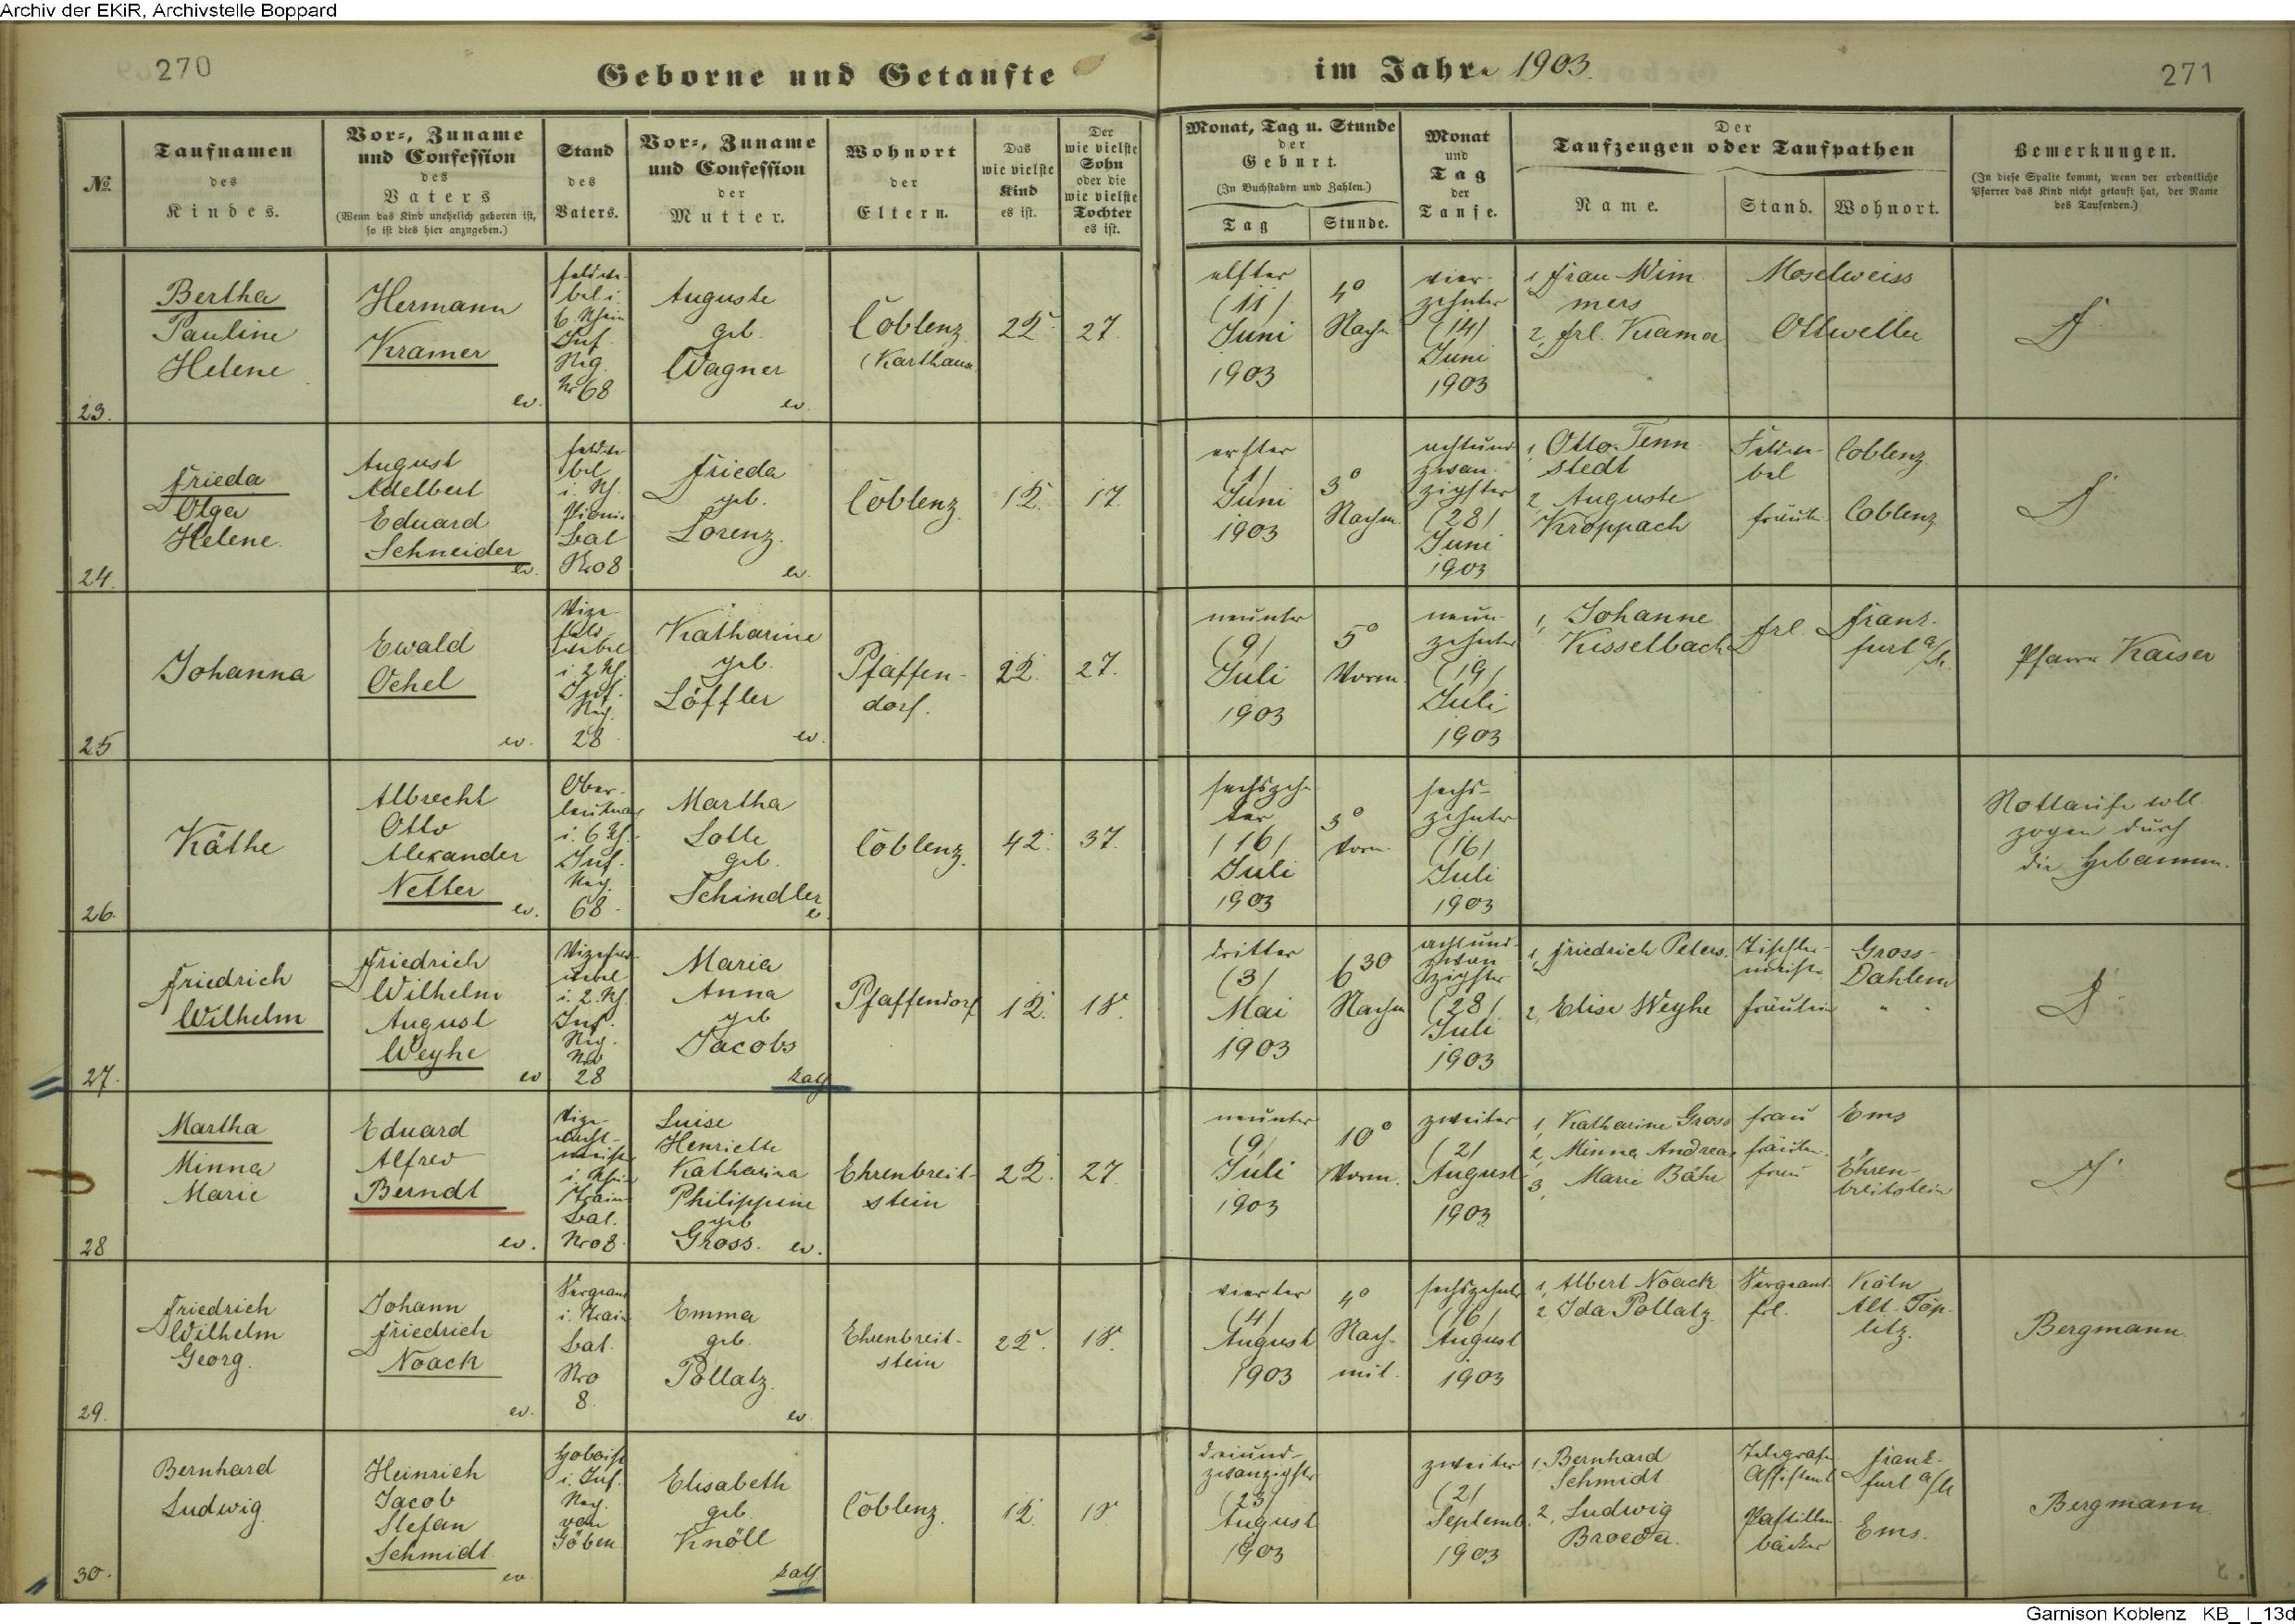 Archiv der EKiR, Archivstelle Boppard
270
Geborne und Getaufte
im Jahre 1903.
271
№
Taufnamen
des
Kindes.
Vor-, Zuname
und Confession
des
Vaters
(Wenn das Kind unehelich geboren ist,
so ist dies hier anzugeben.)
Stand
des
Vaters.
Vor-, Zuname
und Confession
der
Mutter.
Wohnort
der
Eltern.
Das
wie vielste
Kind
es ist.
Der
wie vielste
Sohn
oder die
wie vielste
Tochter
es ist.
Monat, Tag u. Stunde
der
Geburt.
(In Buchstaben und Zahlen.)
Tag
Stunde.
Monat
und
Tag
der
Taufe.
Der
Taufzeugen oder Taufpathen
Name.
Stand.
Wohnort.
Bemerkungen.
(In diese Spalte kommt, wenn der ordentliche
Pfarrer das Kind nicht getauft hat, der Name
des Taufenden.)
23.
Bertha
Pauline
Helene
Hermann
Kramer
ev.
Feldwe-
bel i.
6. Rhein
Inf.
Reg.
Nr 68
Auguste
geb.
Wagner
ev.
Coblenz
(Karthaus
2 K.
2 T.
elfter
(11)
Juni
1903
4⁰
Nachm
vier-
zehnter
(14)
Juni
1903
1, Frau Wim
mers
2, Frl. Kramer
Moselweiss
Ottweiler
24.
Frieda
Olga
Helene.
August
Adelbert
Eduard
Schneider
ev.
Feldwe
bel
i. Rh.
Pionir
Bat
Nro 8
Frieda
geb.
Lorenz.
ev.
Coblenz.
1 K.
1 T.
erster
(1)
Juni
1903
3⁰
Nachm.
achtund
zwan-
zigster
(28)
Juni
1903
1, Otto Tenn
stedt
2, Auguste
Kroppach
Feldwe-
bel
Fräuln
Coblenz
Coblenz
25
Johanna
Ewald
Ochel
ev.
Vize-
feld
webel
i. 2 Rh.
Inf.
Reg.
28
Katharine
geb.
Löffler
ev.
Pfaffen-
dorf.
2 K.
2 T.
neunter
(9)
Juli
1903
5⁰
Vorm.
neun-
zehnter
(19)
Juli
1903
1, Johanne
Kisselbach
Frl.
Frank-
furt a/M.
Pfarrer Kaiser
26.
Käthe
Albrecht
Otto
Alexander
Netter
ev.
Ober-
leutnant
i. 6 Rh.
Inf.
Reg.
68
Martha
Lotte
geb.
Schindler
ev
Coblenz.
4 K.
3 T.
sechszehn
ter
(16)
Juli
1903
3⁰
Vorm
sechs-
zehnter
(16)
Juli
1903
Nottaufe voll
zogen durch
die Hebamme.
27.
Friedrich
Wilhelm
Friedrich
Wilhelm
August
Weyhe
ev
Vizefeld
webel
i. 2. Rh.
Inf.
Reg.
Nro
28
Maria
Anna
geb
Jacobs
kath
Pfaffendorf
1 K.
1 S.
dritter
(3)
Mai
1903
6³⁰
Nachm
achtund-
zwan
zigster
(28)
Juli
1903
1, Friedrich Peters.
2, Elise Weyhe
Tischler-
meister
Fräulein
Gross-
Dahlem
" "
28
Martha
Minna
Marie
Eduard
Alfred
Berndt
ev.
Vize-
wacht-
meister
i. Rhein
Train
Bat.
Nro 8.
Luise
Henriette
Katharina
Philippine
geb
Gross. ev.
Ehrenbreit-
stein
2 K.
2 T.
neunter
(9)
Juli
1903
10⁰
Vorm.
zweiter
(2)
August
1903
1, Katharine Gross
2, Minna Andreae
3, Marie Bähr
Frau
Fräuln.
Frau
Ems
"
Ehren-
breitstein
29.
Friedrich
Wilhelm
Georg.
Johann
Friedrich
Noack
ev.
Sergeant
i. Train
Bat.
Nro
8.
Emma
geb.
Pollatz.
ev.
Ehrenbreit-
stein
2 K.
1 S.
vierter
(4)
August
1903
4⁰
Nach-
mit.
sechszehnte
(16)
August
1903
1, Albert Noack
2 Ida Pollatz.
Sergeant.
Frl.
Köln
Alt-Töp-
litz.
Bergmann.
30.
Bernhard
Ludwig.
Heinrich
Jacob
Stefan
Schmidt
ev
Hoboist
i. Inf.
Reg.
von
Göben
Elisabeth
geb.
Knöll
kath
Coblenz.
1 K.
1 S
dreiund-
zwanzigster
(23)
August
1903
zweiter
(2)
Septemb.
1903
1, Bernhard
Schmidt
2, Ludwig
Broeder.
Telegrafen
Assistent
Pastillen
bäcker
Frank-
furt a/M
Ems.
Bergmann.
Garnison Koblenz KB_I_13d